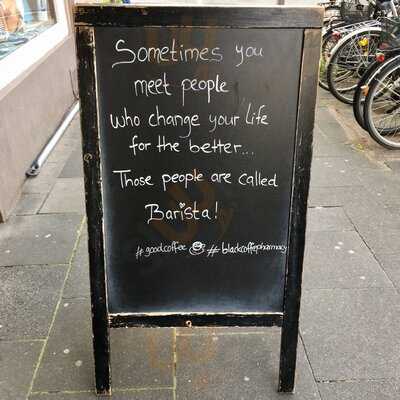 Sometimes you
meet people
who change your life
for the better...
Those people are called
Barista!
#goodcoffee #blackcoffeepharmacy